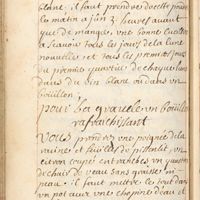 blanc, il faut prendre de celle poudre
le matin a jun 3 heures avant
que de manger, une bonne cuillere
a scavoir tous les jours de la lune
nouvelle, et tous les premiers jours
du premier quartier de chaque lune
dans du vin blanc ou dans un
bouillon.
pour la gravele un bouillon
rafraichissant
Vous prendrez une poignée de la
racine et feuilles de pissenlit, un
citron coupé en tranches, un quarteron
de chair de veau sans graisse ni
peau. il faut mettre le tout dans
un pot avec une chopine d'eau et